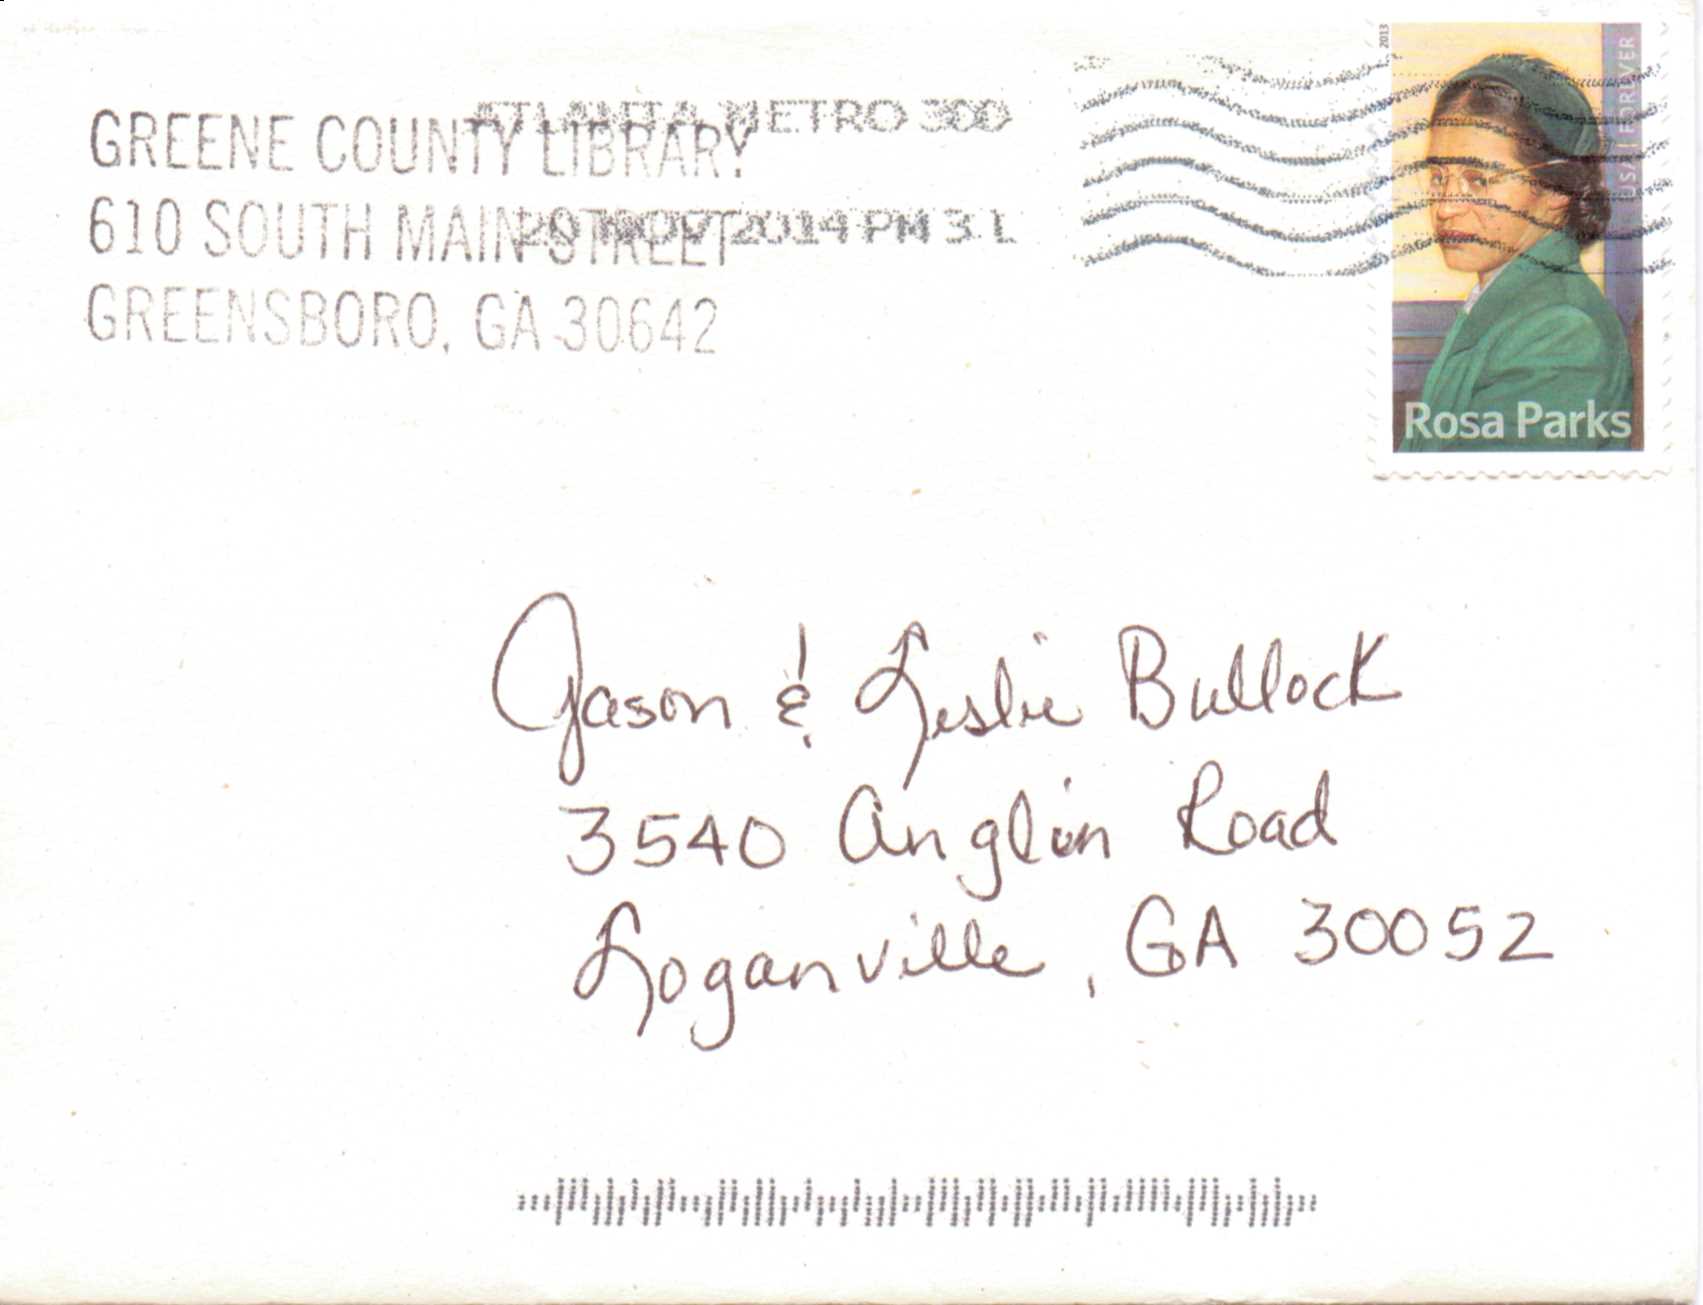 GREENE COUNTY LIBRARY
610 SOUTH MAIN STREET
GREENSBORO, GA 30642
ATLANTA METRO 300
NOV 2014 PM 3 L
2013
USA | FOREVER
Rosa Parks
Jason & Leslie Bullock
3540 Anglin Road
Loganville, GA 30052